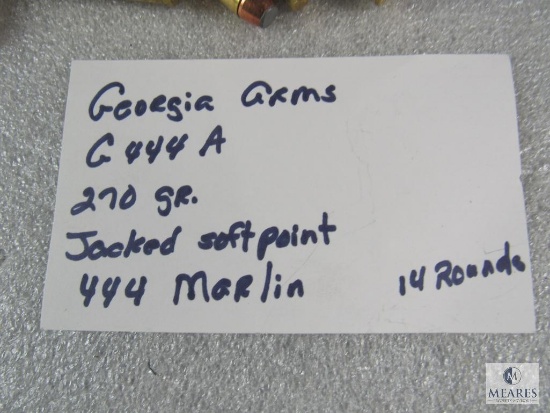 Georgia Arms
G444A
270 gr.
Jacked softpoint
444 Marlin
14 Rounds
M
MEARES